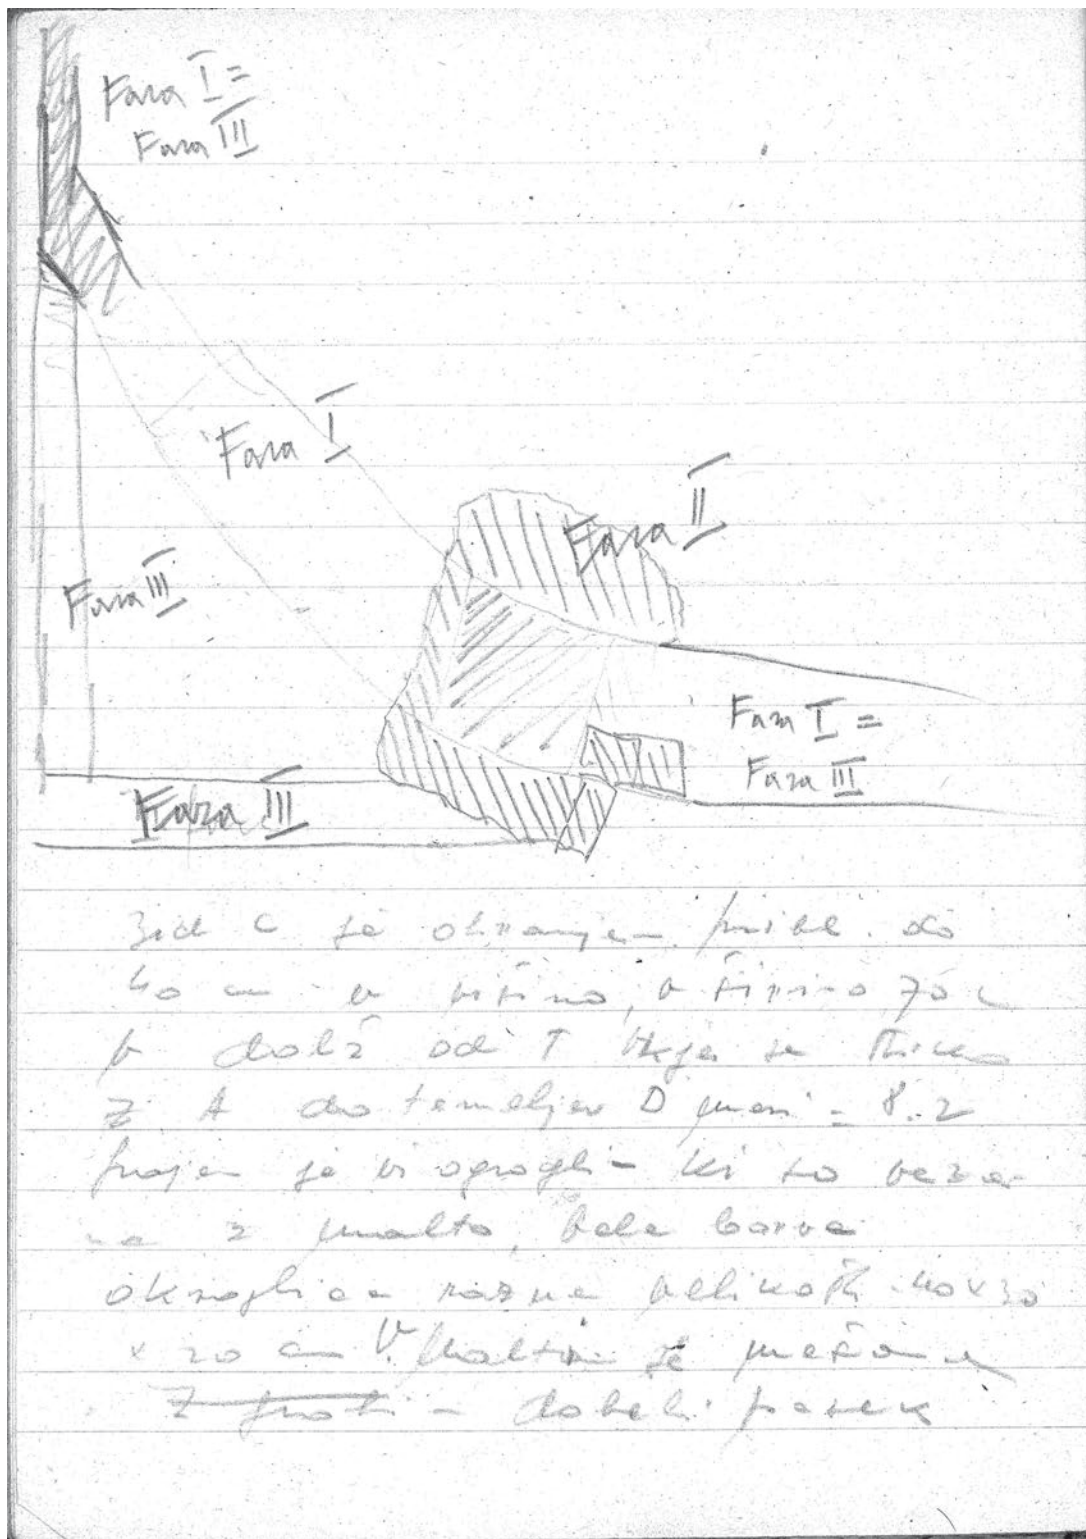 Faza I =
Faza III
Faza I
Faza II
Faza III
Faza I =
Faza III
Faza III
Zid C je ohranjen pribl. do
40 cm v višino, v širino 70 c
v dolž od T kjer se
z A do temeljev D meri = 8.2
je iz ki so veza
na z malto, bele barve
razne velikosti 40 x 30
x 20 cm V malto je
debeli pesek